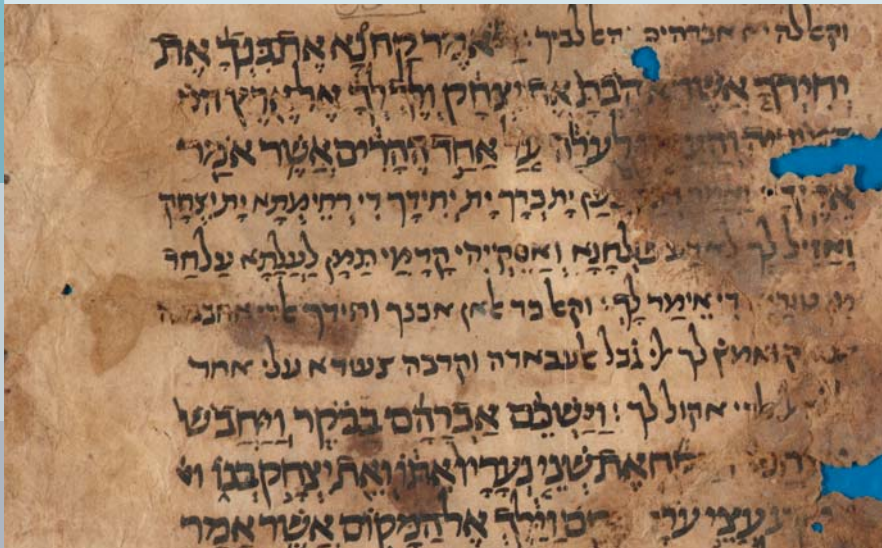 וקאל לה יא אברהים לביך : ויאמר קַח נָא אֶת בִּנְךָ אֶת
יְחִידְךָ אֲשֶׁר אָהַבְתָּ אֶת יִצְחָק וְלֶךְ לְךָ אֶל אֶרֶץ
לְעֹלָה עַל אַחַד הֶהָרִים אֲשֶׁר אֹמַר
אֵלֶיךָ : ואמר כְּעַן יָת בְּרָךְ יָת יְחִידָךְ דִי רְחֵימְתָא יָת יִצְחָק
וְאֵזֵיל לָךְ פֻלְחָנָא וְאַסֵּקְיהִי קֳדָמַי תַּמָּן לַעֲלָתָא עַל חַד
דִי אֵימַר לָךְ : וקאל כד אלאן אבנך וחידך אלדי
ואמץ לך אלי בלד אלעבאדה וקרבה צעידא עלי אחד
אקול לך : וַיַּשְׁכֵּם אַבְרָהָם בַּבֹּקֶר וַיַּחֲבֹשׁ
אֶת שְׁנֵי נְעָרָיו אִתּוֹ וְאֵת יִצְחָק בְּנוֹ
עֲצֵי וַיֵּלֶךְ אֶל הַמָּקוֹם אֲשֶׁר אָמַר